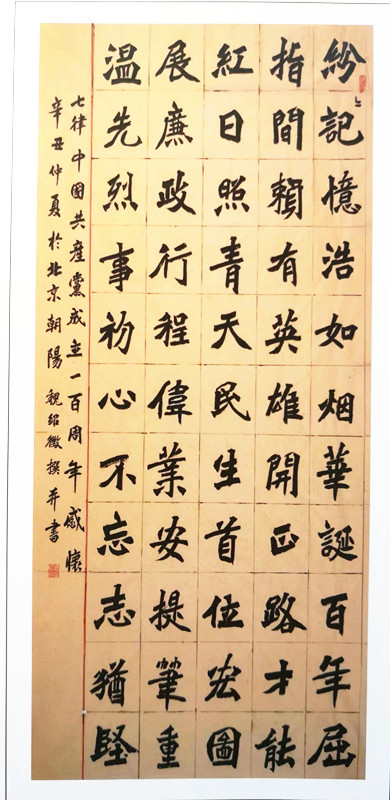 紛〻記憶浩如烟華誕百年屈
指間賴有英雄開正路才能
紅日照青天民生首位宏圖
展廉政行程偉業安提筆重
温先烈事初心不忘志猶堅
七律中國共產黨成立一百周年感懷
辛丑仲夏於北京朝陽 魏紹撰并書